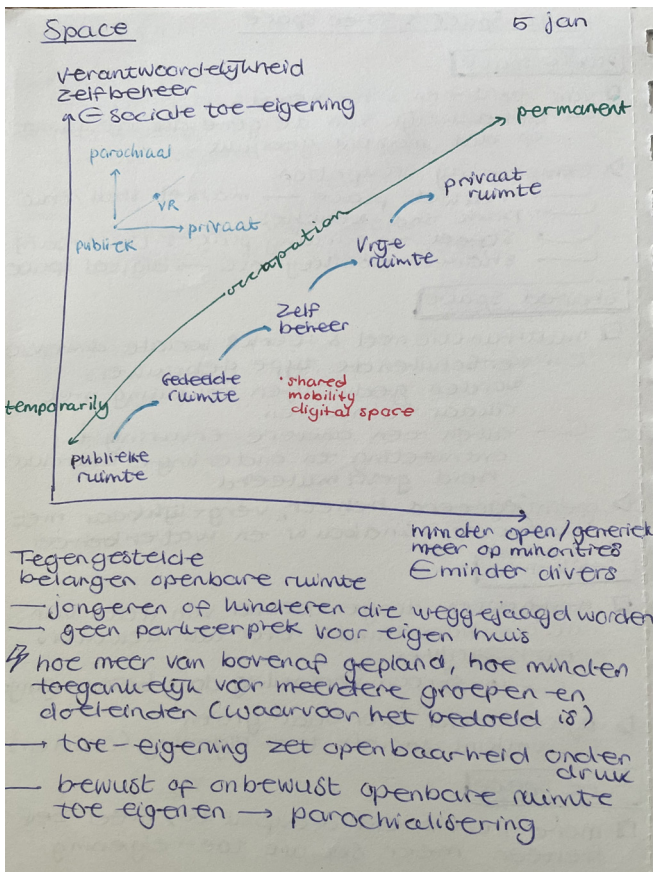 Space
5 jan
verantwoordelijkheid
zelfbeheer
& sociale toe-eigening
permanent
parochiaal
VR
privaat
publiek
occupation
privaat
ruimte
Vrije
ruimte
Zelf
beheer
Gedeelde
ruimte
· shared
mobility
digital space
temporarily
publieke
ruimte
minder open/generiek
meer op minorities
& minder divers
Tegengestelde
belangen openbare ruimte
— jongeren of kinderen die weggejaagd worden
— geen parkeerplek voor eigen huis
hoe meer van bovenaf gepland, hoe minder
toegankelijk voor meerdere groepen en
doeleinden (waarvoor het bedoeld is)
→ toe-eigening zet openbaarheid onder
druk
— bewust of onbewust openbare ruimte
toe eigenen → parochialisering